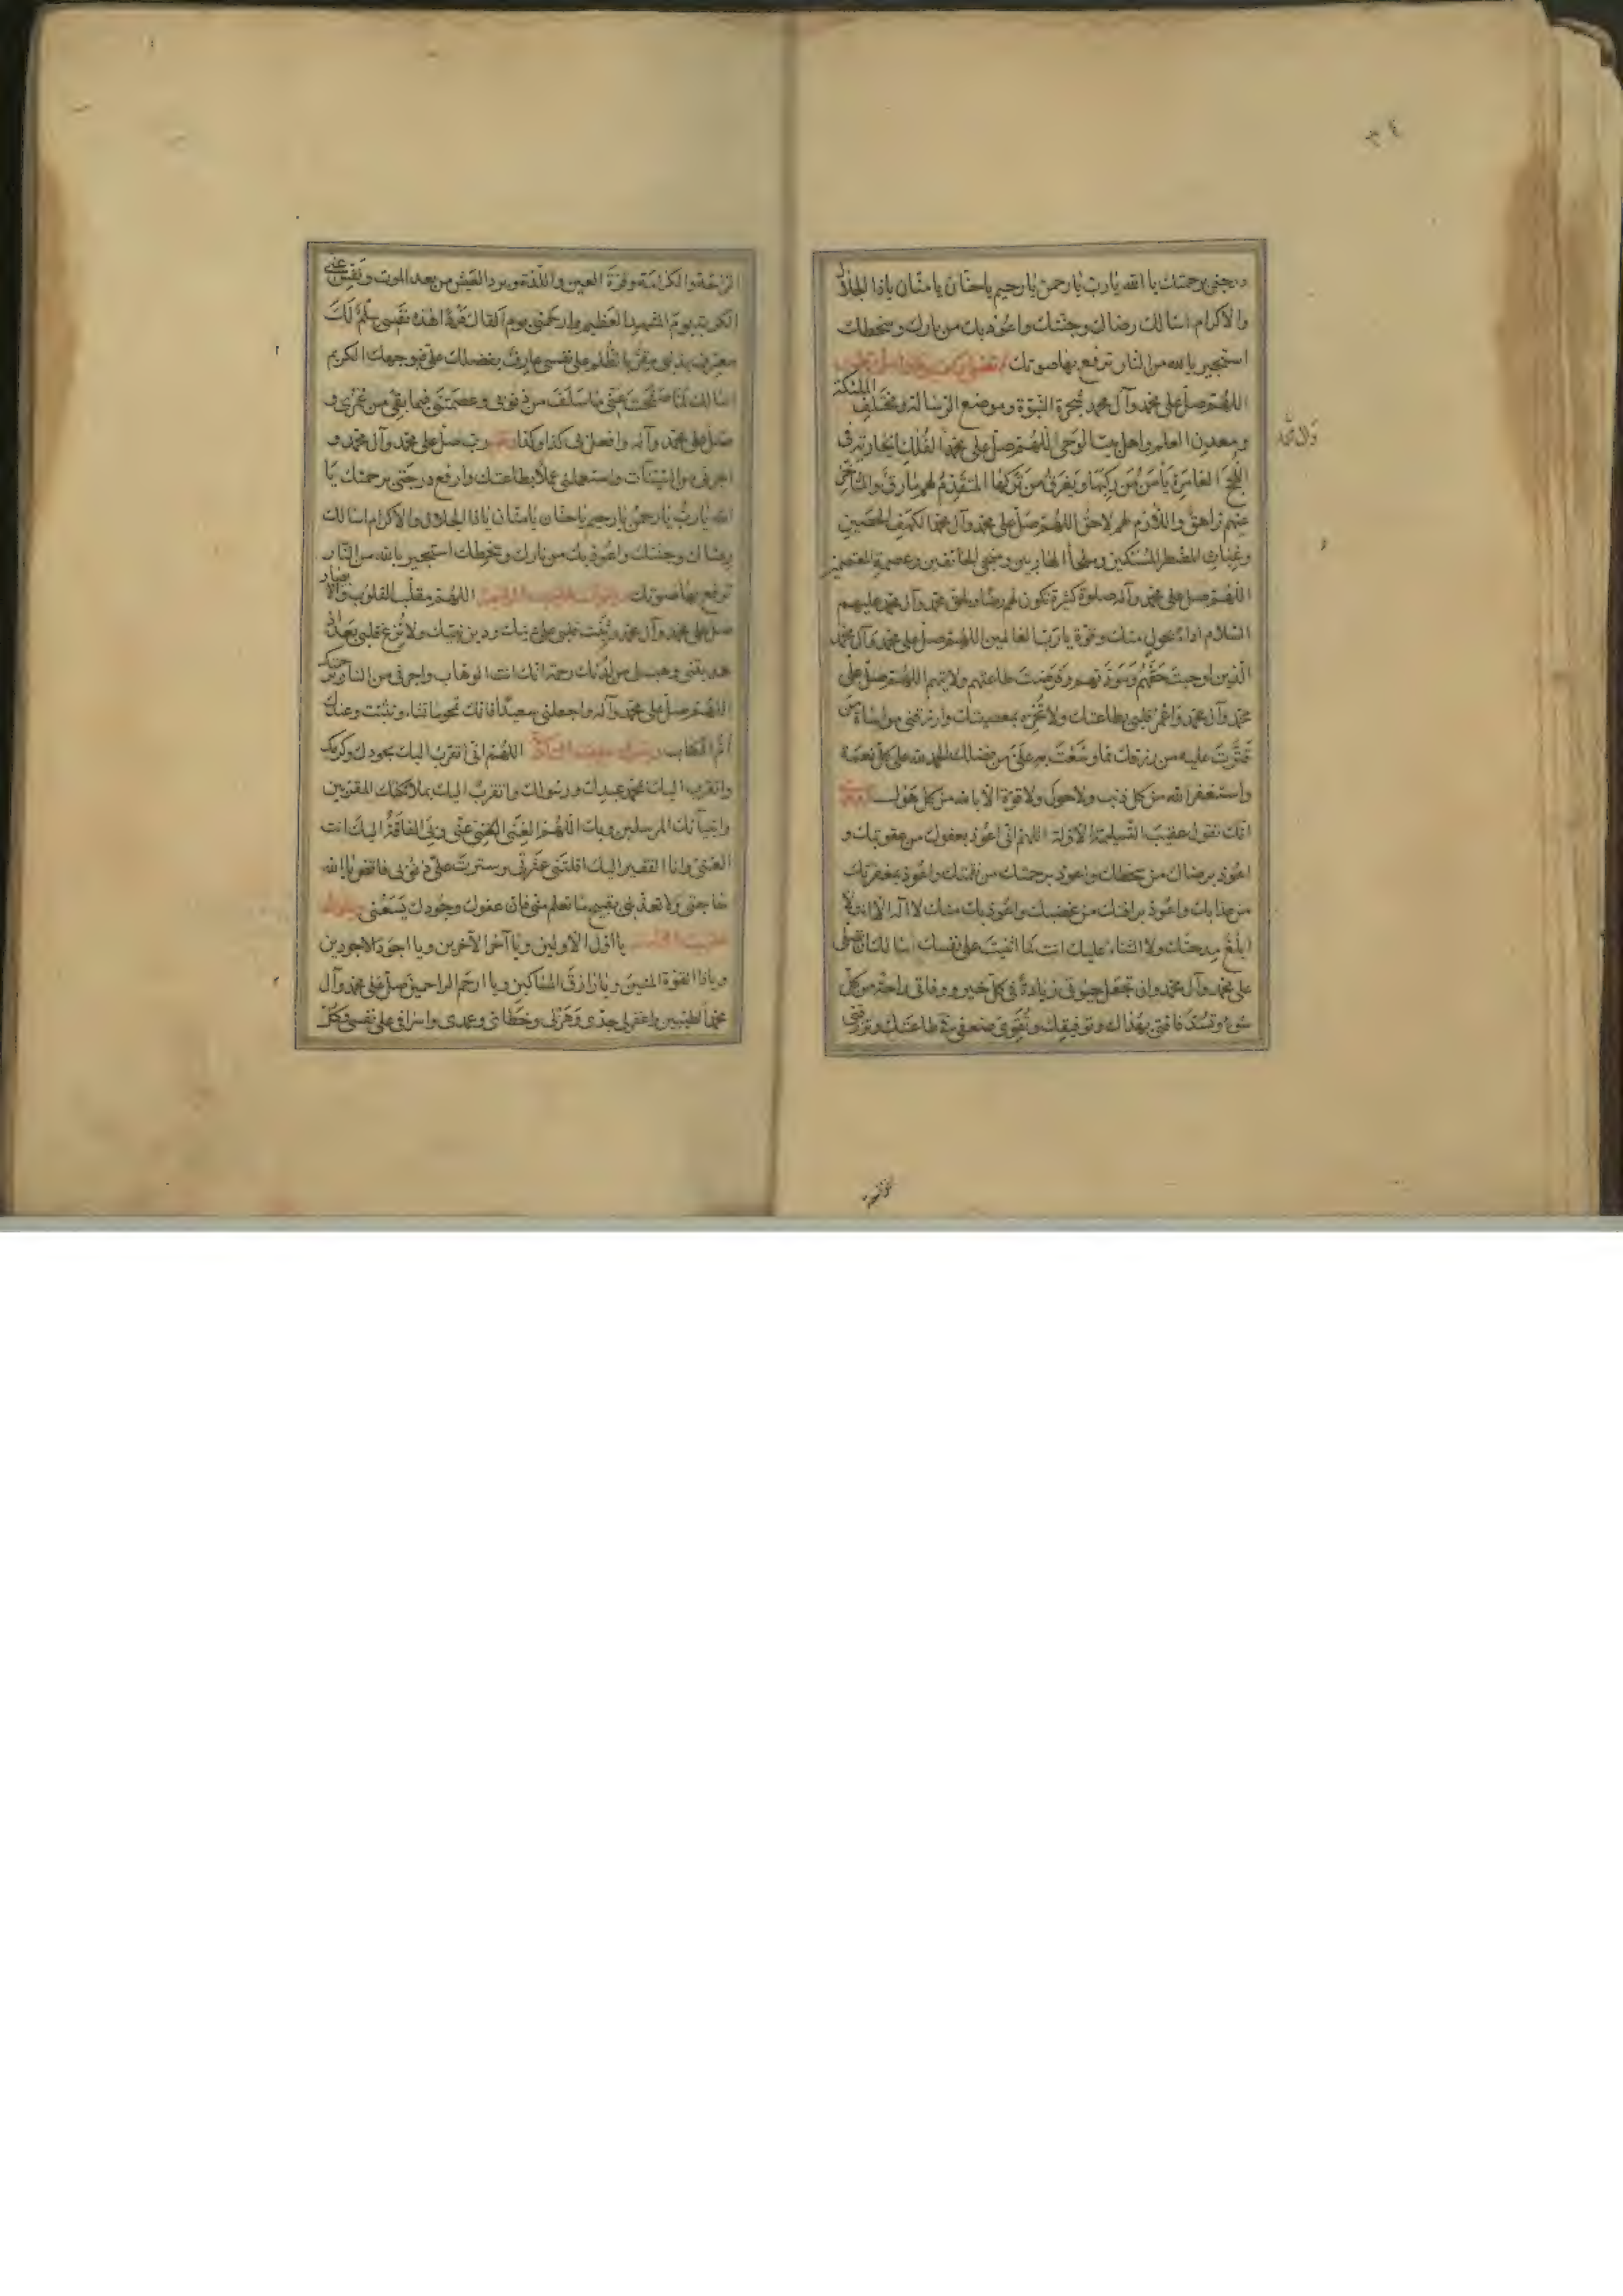 ٣٤
درجتي برحمتك يا الله يا رب يا رحمن يا رحيم يا حنان يا منان يا ذا الجلال
والاكرام اسالك رضاك وجنتك واعوذ بك من نارك وسخطك
استجير بالله من النار ترفع بها صوتك
اللهم صل على محمد وآل محمد شجرة النبوة وموضع الرسالة ومختلف الملئكة
ومعدن العلم واهل بيت الوحى اللهم صل على محمد الفلك الجارية فى
وآل محمد
اللجج الغامرة يأمن من ركبها ويغرق من تركها المتقدم لهم مارق والمتأخر
عنهم زاهق واللازم لهم لاحق اللهم صل على محمد وآل محمد الكهف الحصين
وغياث المضطر المستكين وملجأ الهاربين ومنجى الخائفين وعصمة المعتصمين
اللهم صل على محمد وآله صلوة كثيرة تكون لهم رضا ولحق محمد وآل محمد عليهم
السلام اداء بحول منك وقوة يا رب العالمين اللهم صل على محمد وآل محمد
الذين اوجبت حقهم ومودتهم وفرضت طاعتهم ولايتهم اللهم صل على
محمد وآل محمد واعمر قلبى بطاعتك ولا تخزه بمعصيتك وارزقنى مواساة من
قترت عليه من رزقك مما وسعت به على من فضلك الحمد لله على كل نعمة
واستغفر الله من كل ذنب ولا حول ولا قوة الا بالله من كل هول
انك تقول عقيب التسليمة الاولة اللهم انى اعوذ بعفوك من عقوبتك و
اعوذ برضاك من سخطك واعوذ برحمتك من نقمتك واعوذ بمغفرتك
من عذابك واعوذ برافتك من غضبك واعوذ بك منك لا اله الا انت لا
ابلغ مدحتك ولا الثناء عليك انت كما اثنيت على نفسك اسالك ان تصلى
على محمد وآل محمد وان تجعل حيوتى زيادة فى كل خير ووفاتى راحة من كل
سوء وتسد فاقتى بهداك وتوفيقك وتقوى ضعفى فى طاعتك وترزقنى
الراحة والكرامة وقرة العين واللذة وبرد العيش من بعد الموت ونفس عنى
الكربة يوم المشهد العظيم وارحمنى يوم القاك فردا هذه نفسى سلم لك
معترف بذنبى مقر بالظلم على نفسى عارف بفضلك على فبوجهك الكريم
اسالك لما صفحت عنى ما سلف من ذنوبى وعصمتنى فيما بقى من عمرى و
صل على محمد وآله وافعل بى كذا وكذا رب صل على محمد وآل محمد و
اجرنى من السيئات واستعملنى عملا بطاعتك وارفع درجتى برحمتك يا
الله يا رب يا رحمن يا رحيم يا حنان يا منان يا ذا الجلال والاكرام اسالك
رضاك وجنتك واعوذ بك من نارك وسخطك استجير بالله من النار
ترفع بها صوتك اللهم مقلب القلوب والابصار
صل على محمد وآل محمد وثبت قلبى على دينك ودين نبيك ولا تزغ قلبى بعد اذ
هديتنى وهب لى من لدنك رحمة انك انت الوهاب واجرنى من النار برحمتك
اللهم صل على محمد وآله واجعلنى سعيدا فانك تمحو ما تشاء وتثبت وعندك
ام الكتاب اللهم انى اتقرب اليك بجودك وكرمك
واتقرب اليك بمحمد عبدك ورسولك واتقرب اليك بملائكتك المقربين
وانبيائك المرسلين وبك اللهم الغنى عنى وبى الفاقة اليك انت
الغنى وانا الفقير اليك اقلتنى عثرتى وسترت على ذنوبى فاقض يا الله
حاجتى ولا تعذبنى بقبيح ما تعلم منى فان عفوك وجودك يسعنى
يا اول الاولين ويا آخر الآخرين ويا اجود الاجودين
ويا ذا القوة المتين ويا رازق المساكين ويا ارحم الراحمين صل على محمد وآل
محمد الطيبين واغفر لى جدى وهزلى وخطائى وعمدى واسرافى على نفسى وكل